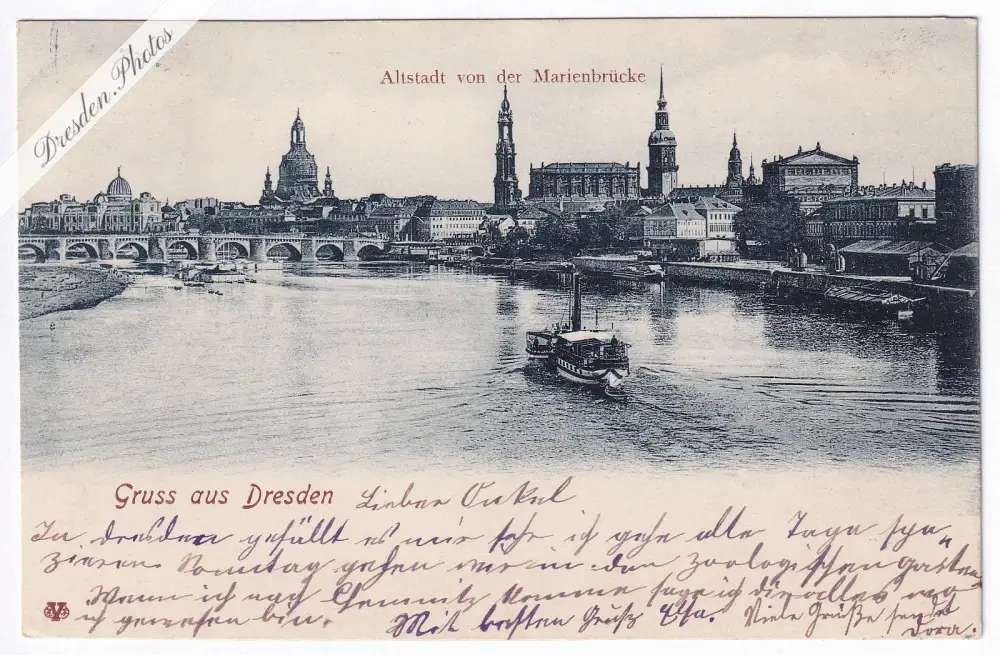 Dresden.Photos
Altstadt von der Marienbrücke
Gruss aus Dresden
Lieber Onkel
In Dresden gefällt es mir sehr ich gehe alle Tage spa„
zieren Sonntag gehen wir in den zoologischen Garten
Wenn ich nach Chemnitz komme sage ich dir alles wo
ich gewesen bin. Mit besten Grüß Ella. Viele Grüße sendet
Dora.